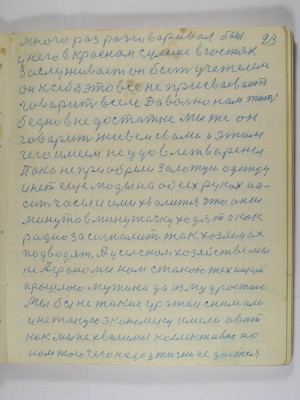 много раз разговаривал был 93
у него в красном сулине в гостях
заслуживает он быть учетелем
он к себя это все не присваевает
говарит всем Давольно нам жить
бедно в не достатке мы же он
говарит живем с вами а этим
чего имеем не удовлетварены
пака не приобрели золотую одежду
и нет еще моды на обеех руках на-
сить часы и ими хвалится что они
минута в минутачку ходят а как
радио засигналит так хозяевах
подводят. А у сельском хозяйстве мы
не Аграномы нам с такою техникой
прошлого мужика да из му дростою
Мы бы не такие уражаи снимали
и не такую экономеку имели а вот
как мы не хвалими коллективно но
нам того чего надо у жизни не дается